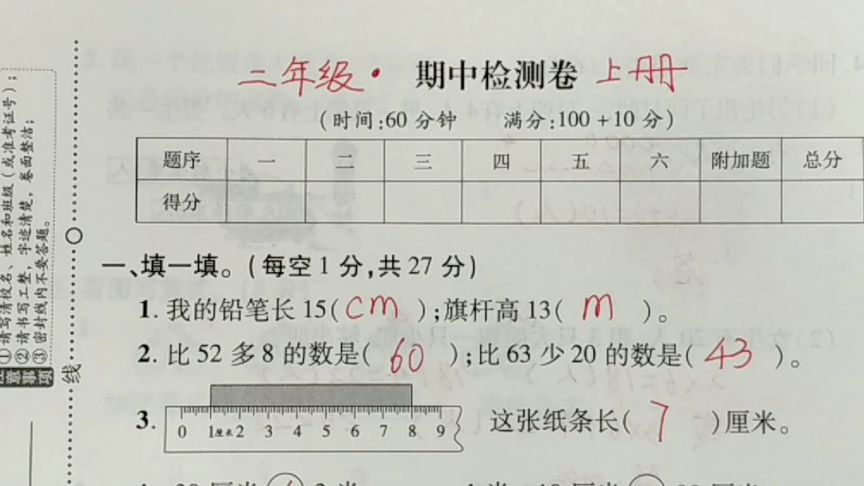 二年级· 期中检测卷 上册
(时间:60分钟 满分:100+10分)
题序 一 二 三 四 五 六 附加题 总分
得分
一、填一填。(每空1分,共27分)
1.我的铅笔长15(cm);旗杆高13(m)。
2.比52多8的数是(60);比63少20的数是(43)。
3. 0 1厘米2 3 4 5 6 7 8 9 这张纸条长(7)厘米。
①请写清校名、姓名和班级(或准考证号);
②请书写工整,字迹清楚,卷面整洁;
③密封线内不要答题。
注意事项
线